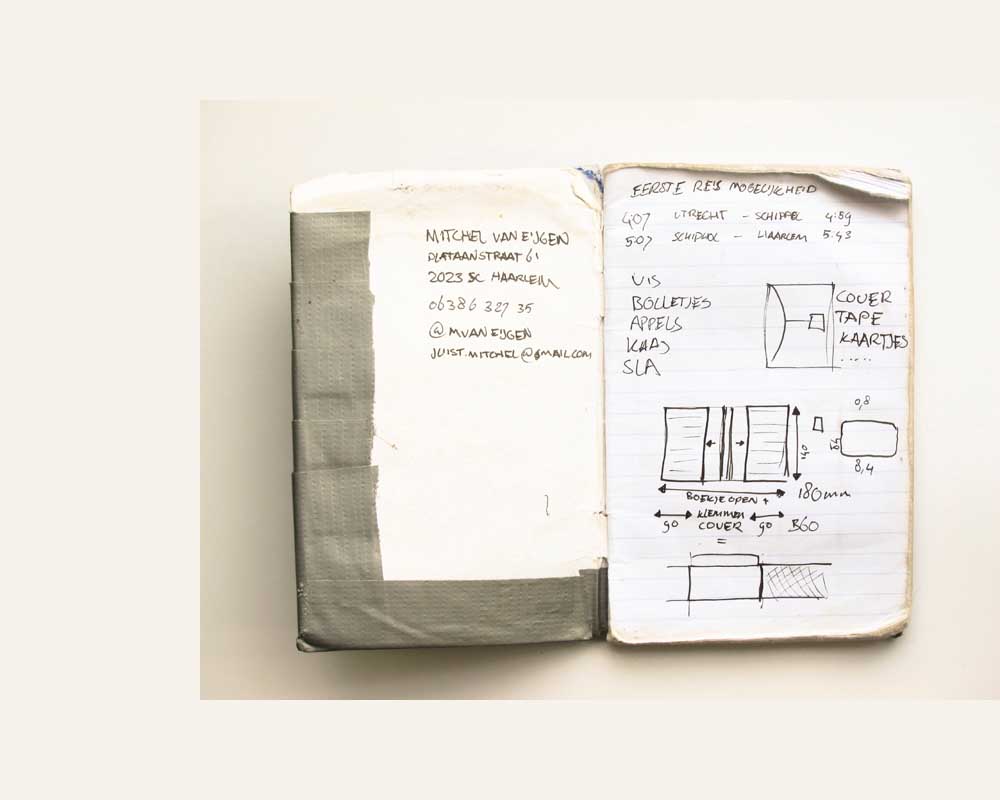 MITCHEL VAN EIJGEN
PLATAANSTRAAT 61
2023 SC HAARLEM
06386 327 35
@MVANEIJGEN
JUIST.MITCHEL@GMAIL.COM
EERSTE REIS MOGELIJKHEID
4:07 UTRECHT - SCHIPPEL 4:59
5:07 SCHIPHOL - HAARLEM 5:43
VIS
BOLLETJES
APPELS
KAAS
SLA
COVER
TAPE
KAARTJES
.....
0,8
140
8,4
180mm
BOEKJE OPEN +
KLEMMEN
90 COVER 90 B60
=